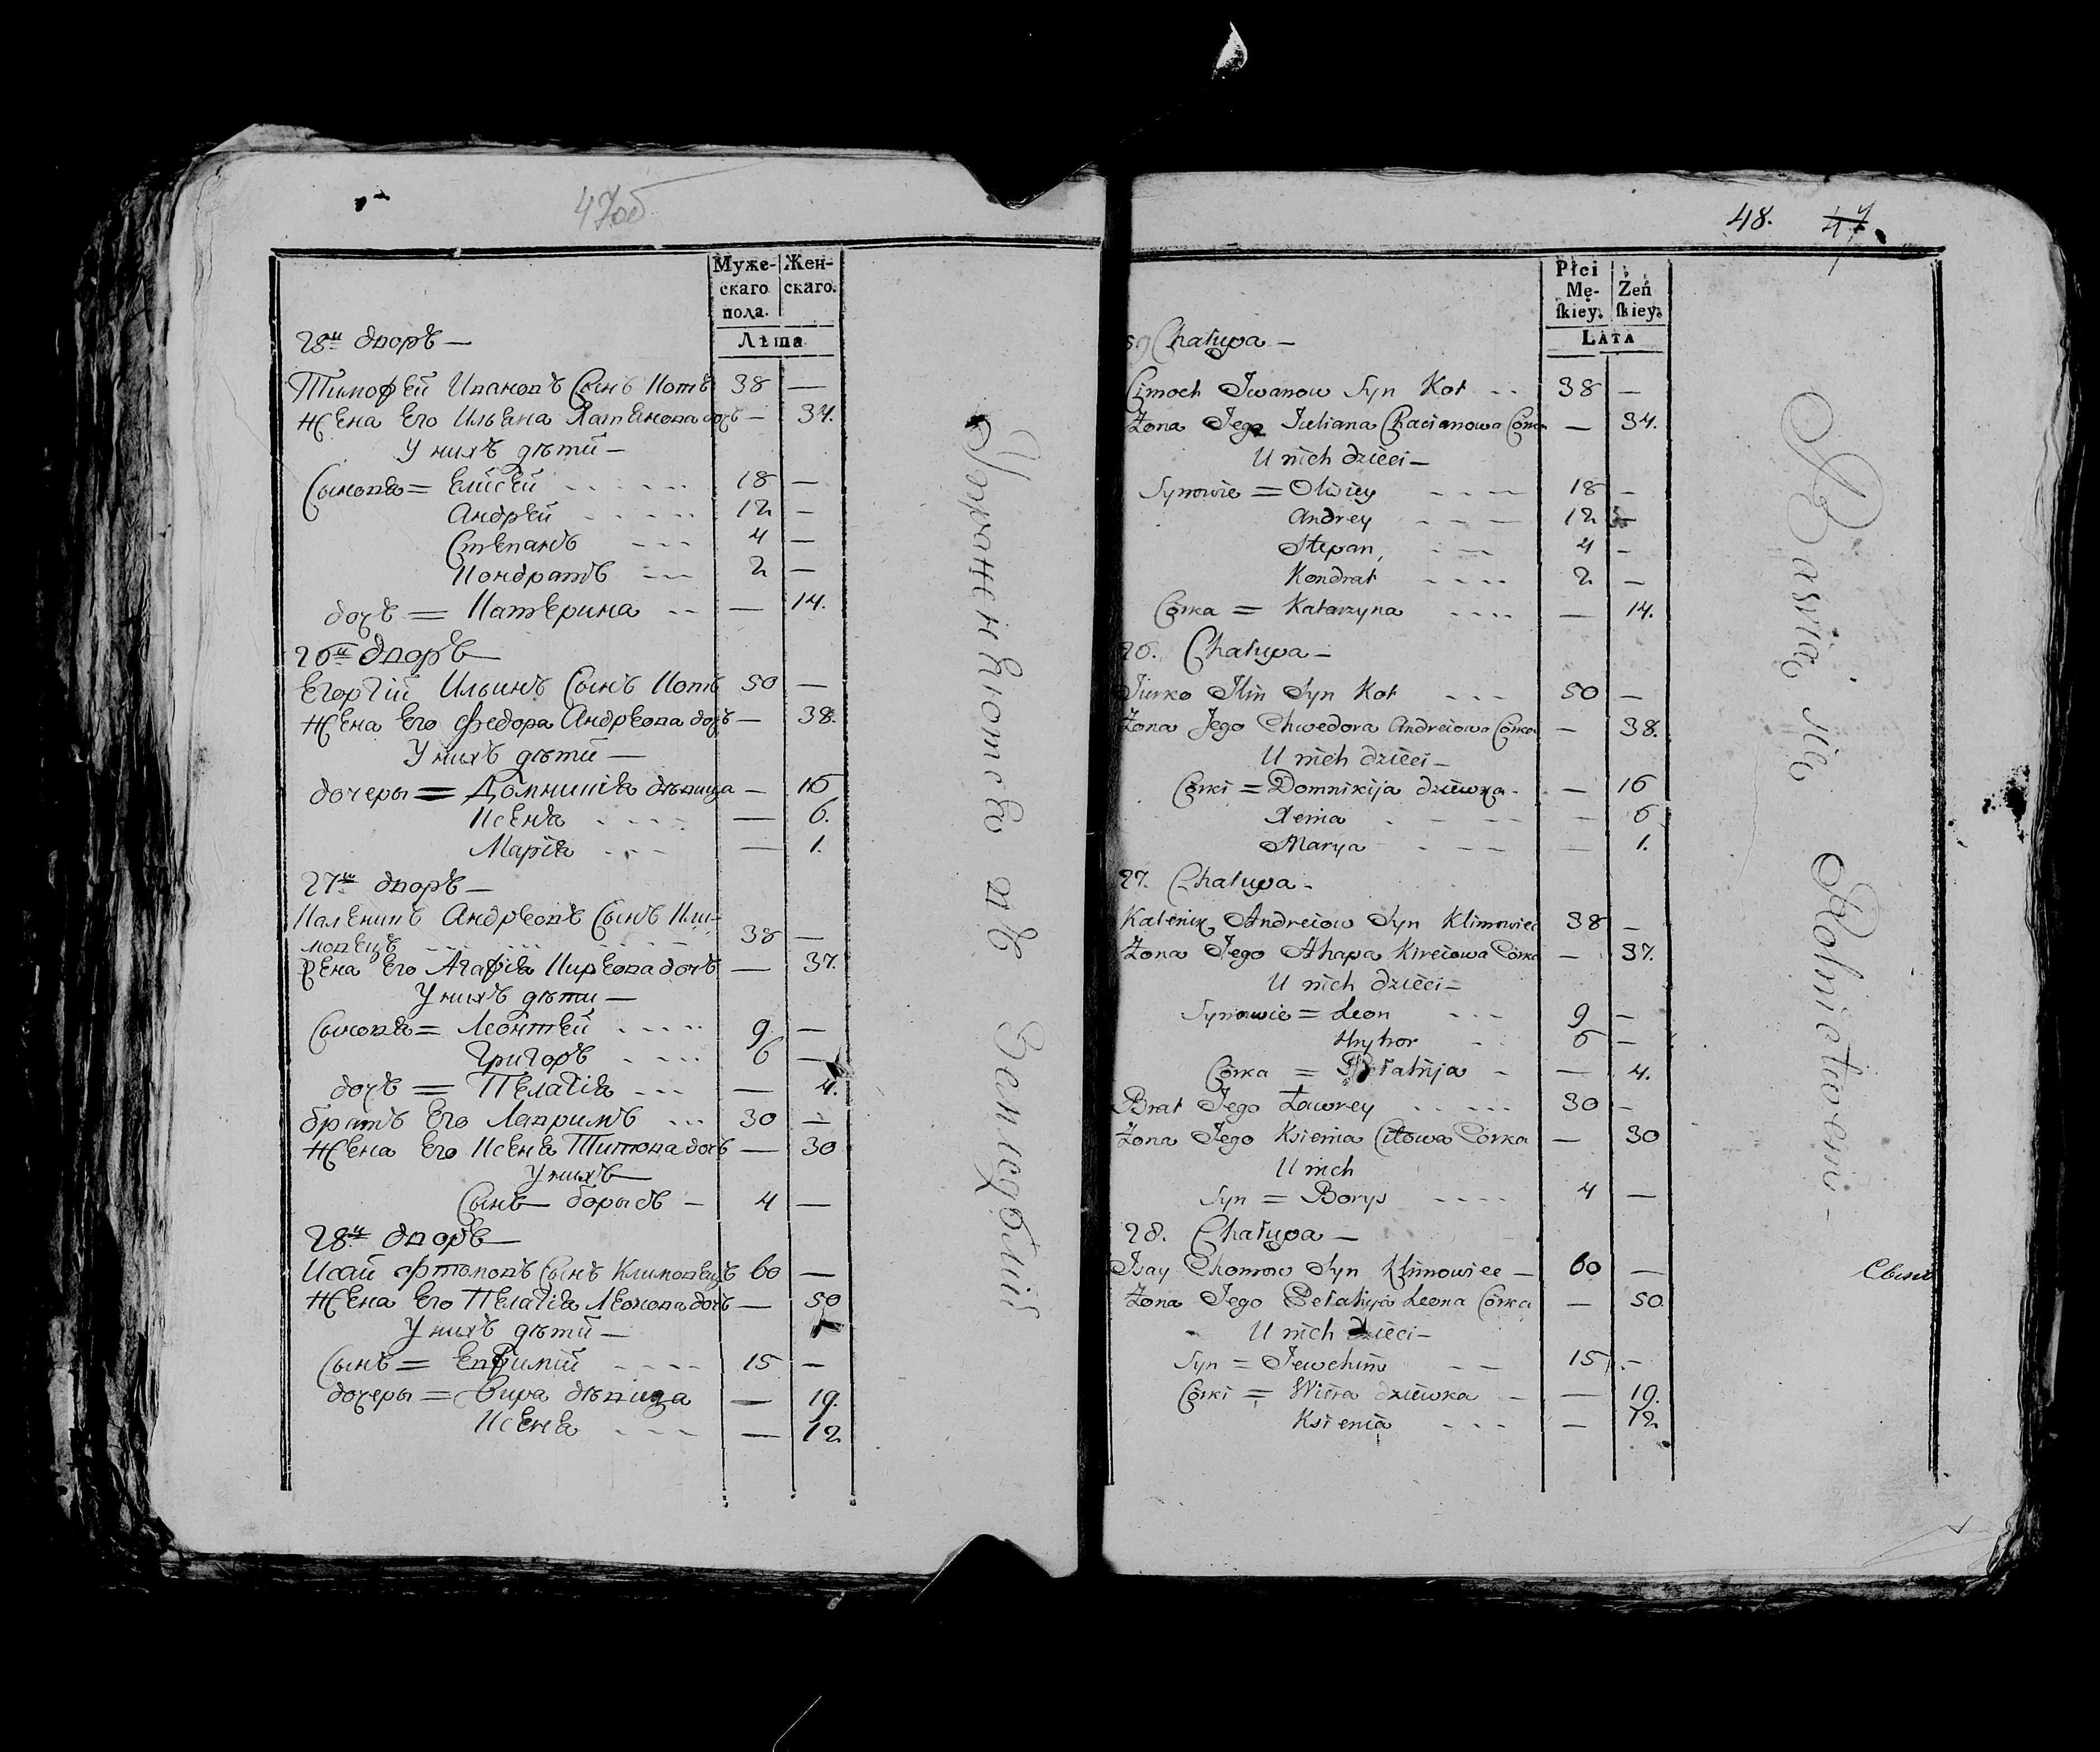 47об
Муже-
скаго
пола.
Жен-
скаго.
Лѣта
25й дворъ —
Тимофей Ивановъ Сынъ Котъ 38 —
Жена Его Ульяна дочь — 34.
У нихъ дѣти —
Сыновья = Елисей 18 —
Андрей 12 —
Степанъ 4 —
Кондратъ 2 —
дочь = Катерина — 14.
26й дворъ —
Егоргій Ильинъ Сынъ Котъ 50 —
Жена Его Федора Андреева дочь — 38.
У нихъ дѣти —
дочеры = Домникія дѣвица — 16
Ксеня — 6.
Марія — 1.
27й дворъ —
Каленикъ Андреевъ Сынъ Кли-
мовецъ 38 —
Жена Его Агафія Кирѣева дочь — 37.
У нихъ дѣти —
Сыновья = Леонтей 9 —
Григоръ 6 —
дочь = Пелагія — 4.
братъ Его Лавримъ 30 —
Жена Его Ксеня Титова дочь — 30
У нихъ —
Сынъ — борысъ — 4 —
28й дворъ —
Исай Сынъ Климовецъ 60 —
Жена Его Пелагія Леонова дочь — 50
У нихъ дѣти —
Сынъ = Евфимій 15 —
дочеры = Вира дѣвица — 19.
Ксеня — 12
Упражняются въ Земледѣліи
48. 47
Płci
Mę-
skiey.
Żeń
skiey.
LATA
Chałupa —
Cimoch Iwanow Syn Kot 38 —
Żona Jego Juliana Chacianowa Córka — 34.
U nich dzieci —
Synowie = Olisiey 18 —
Andrey 12 —
Stepan 4 —
Kondrat 2 —
Córka = Katarzyna — 14.
26. Chałupa —
Jurko Ilin Syn Kot 50 —
Żona Jego Chwedora Andreiowa Córka — 38.
U nich dzieci —
Córki = Domnikija dziewka — 16
Xenia — 6
Marya — 1.
27. Chałupa —
Kalenik Andreiow Syn Klimowiec 38 —
Żona Jego Ahapa Kireiowa Córka — 37.
U nich dzieci —
Synowie = Leon 9 —
Hryhor 6 —
Córka = Pełahija — 4.
Brat Jego Ławrey 30 —
Żona Jego Ksienia Citowa Córka — 30
U nich
Syn = Borys 4 —
28. Chałupa —
Isay Chomow Syn Klimowiec — 60 —
Żona Jego Pełahija Leona Córka — 50.
U nich dzieci —
Syn = Jewchim 15 —
Córki = Wiera dziewka — 19.
Ksienia — 12
Bawią się Rolnictwem —